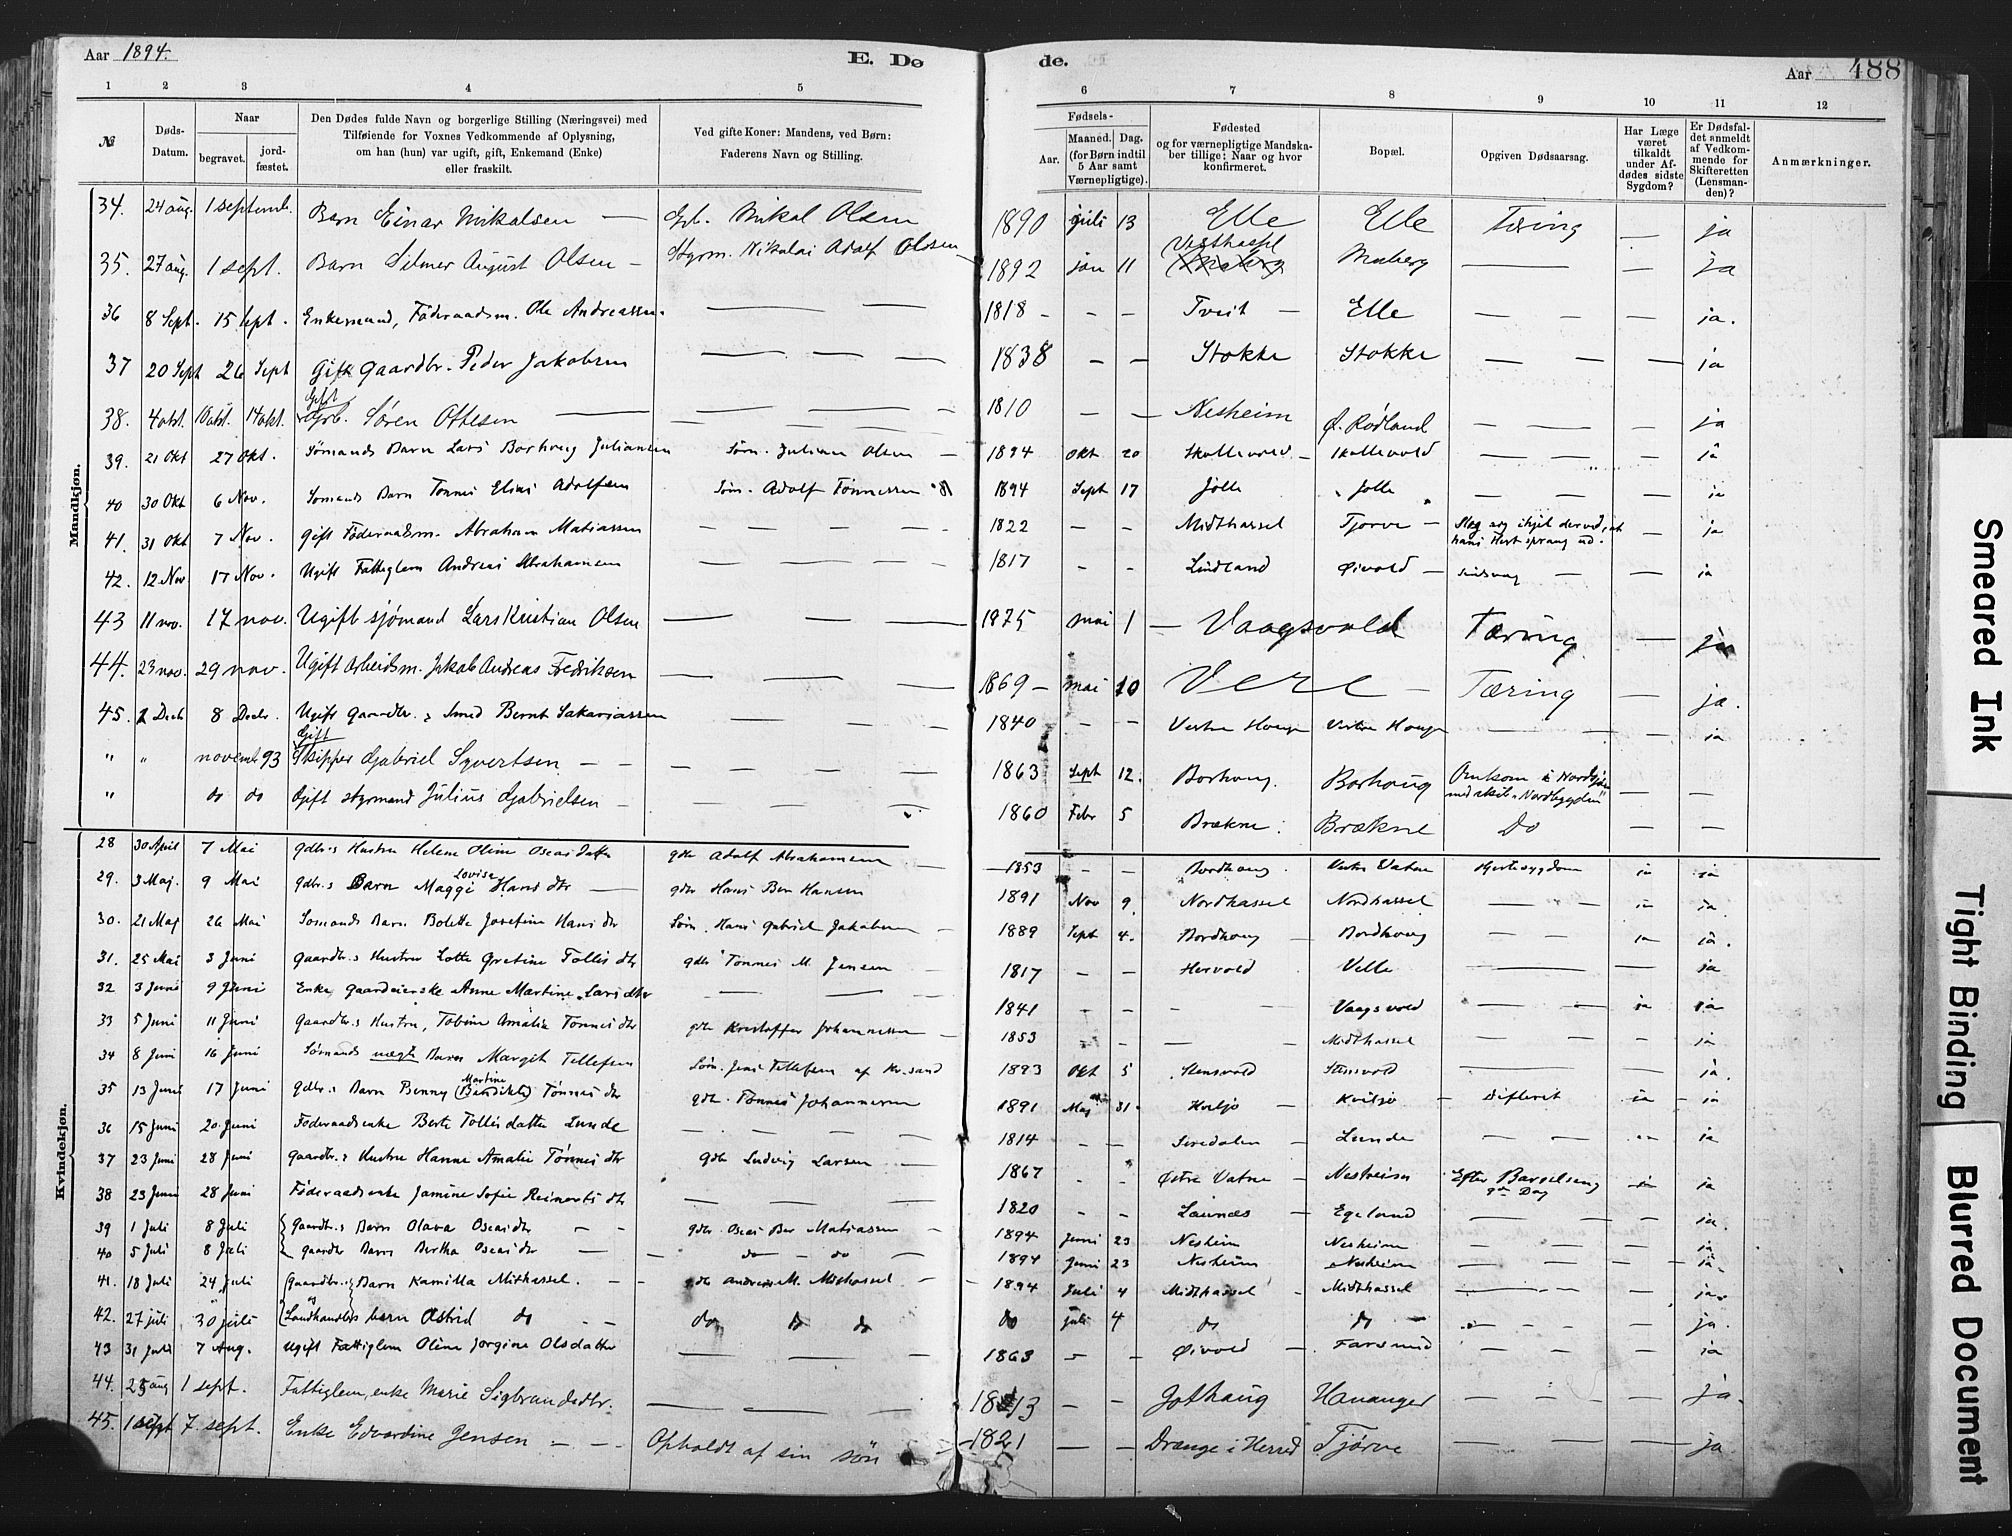 Aar 1894. E. Dø de. Aar 488
1 2 3 4 5 6 7 8 9 10 11 12
№ Døds-Datum. Naar begravet. jordfæstet. Den Dødes fulde Navn og borgerlige Stilling (Næringsvei) med Tilføiende for Voxnes Vedkommende af Oplysning, om han (hun) var ugift, gift, Enkemand (Enke) eller fraskilt. Ved gifte Koner: Mandens, ved Børn: Faderens Navn og Stilling. Fødsels- Aar. Maaned. Dag. (for Børn indtil 5 Aar samt Værnepligtige). Fødested og for værnepligtige Mandskaber tillige: Naar og hvor konfirmeret. Bopæl. Opgiven Dødsaarsag. Har Læge været tilkaldt under Afdødes sidste Sygdom? Er Dødsfaldet anmeldt af Vedkommende for Skifteretten (Lensmanden)? Anmærkninger.
Mandkjøn.
34. 24 aug. 1 septemb. Barn Einar Mikalsen — Grb. Mikal Olsen 1890 juli 13 Elle Elle Tæring — ja
35. 27 aug. 1 sept. Barn Silmer August Olsen — Styrm. Nikolai Adolf Olsen 1892 jan 11 Vesthassel Maberg — — ja
36 8 Sept. 15 Sept. Enkemand, Føderaadsm. Ole Andreassen. — — 1818 - - - Tveit — Elle — — — ja.
37 20 Sept 26 Sept Gift Gaardbr. Peder Jakobsen — — — 1838 — — Stokke Stokke — — — ja
38. 4 okt. 10 okt. 14 okt. Gift Grb. Søren Ottesen — — — — 1810 - — Nesheim Ø. Rødland — — — ja
39. 21 Okt 27 Okt. Sømands Barn Lars Borhoug Juliansen Søm. Julian Olsen — 1894 Okt 20 Skollevold - Skollevold — — — ja
40 30 Okt 6 Nov. Sømands Barn Tønnes Elias Adolfsen Søm. Adolf Tønnessen 1894 Sept 17 Jølle Jølle — — — ja
41. 31 Okt 7 Nov. Gift Føderaadsm. Abraham Matiassen — — — — 1822 - - Midthassel Tjørve — Slog sig ihjel derved, at hans Hest sprang ud. — ja
42. 12 Nov. 17 Nov. Ugift Fattiglem Andreas Abrahamsen — — — 1817 - - Lindland Øivold — — — ja
43 11 nov. 17 nov. Ugift sjømand Lars Kristian Olsen — — — 1875 mai 1 — Vaagsvold Tæring — ja
44. 23 nov. 29 nov. Ugift Arbeidsm. Jakob Andreas Fedriksen — — — 1869 — mai 10 Vere — Tæring — ja.
45. 2 Decb 8 Decbr. Ugift Gaardbr. & Smed Bernt Sakariassen — — — 1840 - - Vestre Hauge Vestre Hauge — — — ja
" " novemb 93 Gift Skipper Gabriel Syvertsen — — — — — — 1863 Sept 12. Borhoug. Borhoug Omkom i Nordsjøen med skib „Nordbygden" — —
" do do Gift styrmand Julius Gabrielsen — 1860 Febr 5 Brækne. Brækne Do — —
Kvindekjøn.
28 30 April 7 Mai Gdbr.s Hustru Helene Oline Oscarsdatter gdbr Adolf Abrahamsen — 1853 - - Bordhoug. Vestre Vatne Hjertesygdom ja ja
29. 3 Maj. 9 Mai Gdbr.s Barn Maggi Lovise Hansdtr — gdbr Hans Ber Hansen 1891 Nov 9. Nordhassel Nordhassel — — ja ja.
30. 21 Maj 26 Mai Sømands Barn Bolette Josefine Hansdtr Søm. Hans Gabriel Jakobsen — 1889 Sept 4. Bordhoug — Bordhoug — — ja ja.
31. 25 Mai 3 Juni Gaardbr.s Hustru Lotte Gretine Tollisdtr gdbr Tønnes M. Jensen — 1817 - - Hervold Velle — — ja
32 3 Juni 9 Juni Enke Gaardeierske Anne Martine Larsdtr — — — 1841 - - - - Vaagsvold — — ja ja
33 5 Juni 11 Juni Gaardbr.s Hustru, Tobine Amalie Tønnesdtr gdbr Kristoffer Johannessen — 1853 - - — — Midthassel — — — ja
34 8 Juni 16 Juni Sømands uægte Barn Margit Tellefsen Søm. Jens Tellefsen af Kr.sand 1893 Okt 5 Stensvold Stensvold — — ja.
35 13 Juni 17 Juni Gdbr.s Barn Benny Martine (Benedikte) Tønnesdtr gdbr. Tønnes Johannesen 1891 Maj 31. — Kviljo — Difterit ja — ja
36 15 Juni 20 Juni Føderaadsenke Berte Tollisdatter Lunde — — — — 1814 - — Siredalen — Lunde — — — ja
37 23 Juni 28 Juni Gaardbr.s Hustru Hanne Amalie Tønnesdtr Gdbr Ludvig Larsen — 1867 - - Østre Vatne — Nesheim Efter Barselseng 9de Dag ja ja
38 23 Juni 28 Juni Føderaadsenke Jamine Sofie Reinertsdtr — — — 1820 - - Launæs — Egeland — — — ja.
39 1 Juli 8 Juli Gaardbr.s Barn Olava Oscarsdtr — — gdbr. Oscar Ber Matiassen — 1894 Juni 23 Nesheim Nesheim — — — ja
40 5 Juli 8 Juli gaardbr Barn Bertha Oscarsdtr — — do — do — 1894 Juni 23 Nesheim Nesheim — — — ja.
41. 18 Juli 24 Juli Gaardbr.s Barn Kamilla Mithassel. — — gdbr Andreas M. Mithassel — 1894 Juli 4 Midthassel — Midthassel — — — ja.
42. 27 juli 30 juli og Landhandlers barn Astrid do — — do do do do juli 4 do do — — — ja.
43 31 Juli 7 Aug. Ugift Fattiglem Oline Jorgine Olsdatter — — — 1863 - - Øivold — Farsund — — — ja
44. 25 aug 1 sept. Fattiglem, enke Marie Sigbrandsdtr. — — — 1813 — — Gothaug Hananger — — — ja.
45. 1 sept 7. sept. Enke Edvardine Jensen — — Opholdt af sin søn 1821 — — Drange i Herred Tjørve — — — ja
Smeared Ink
Tight Binding
Blurred Document